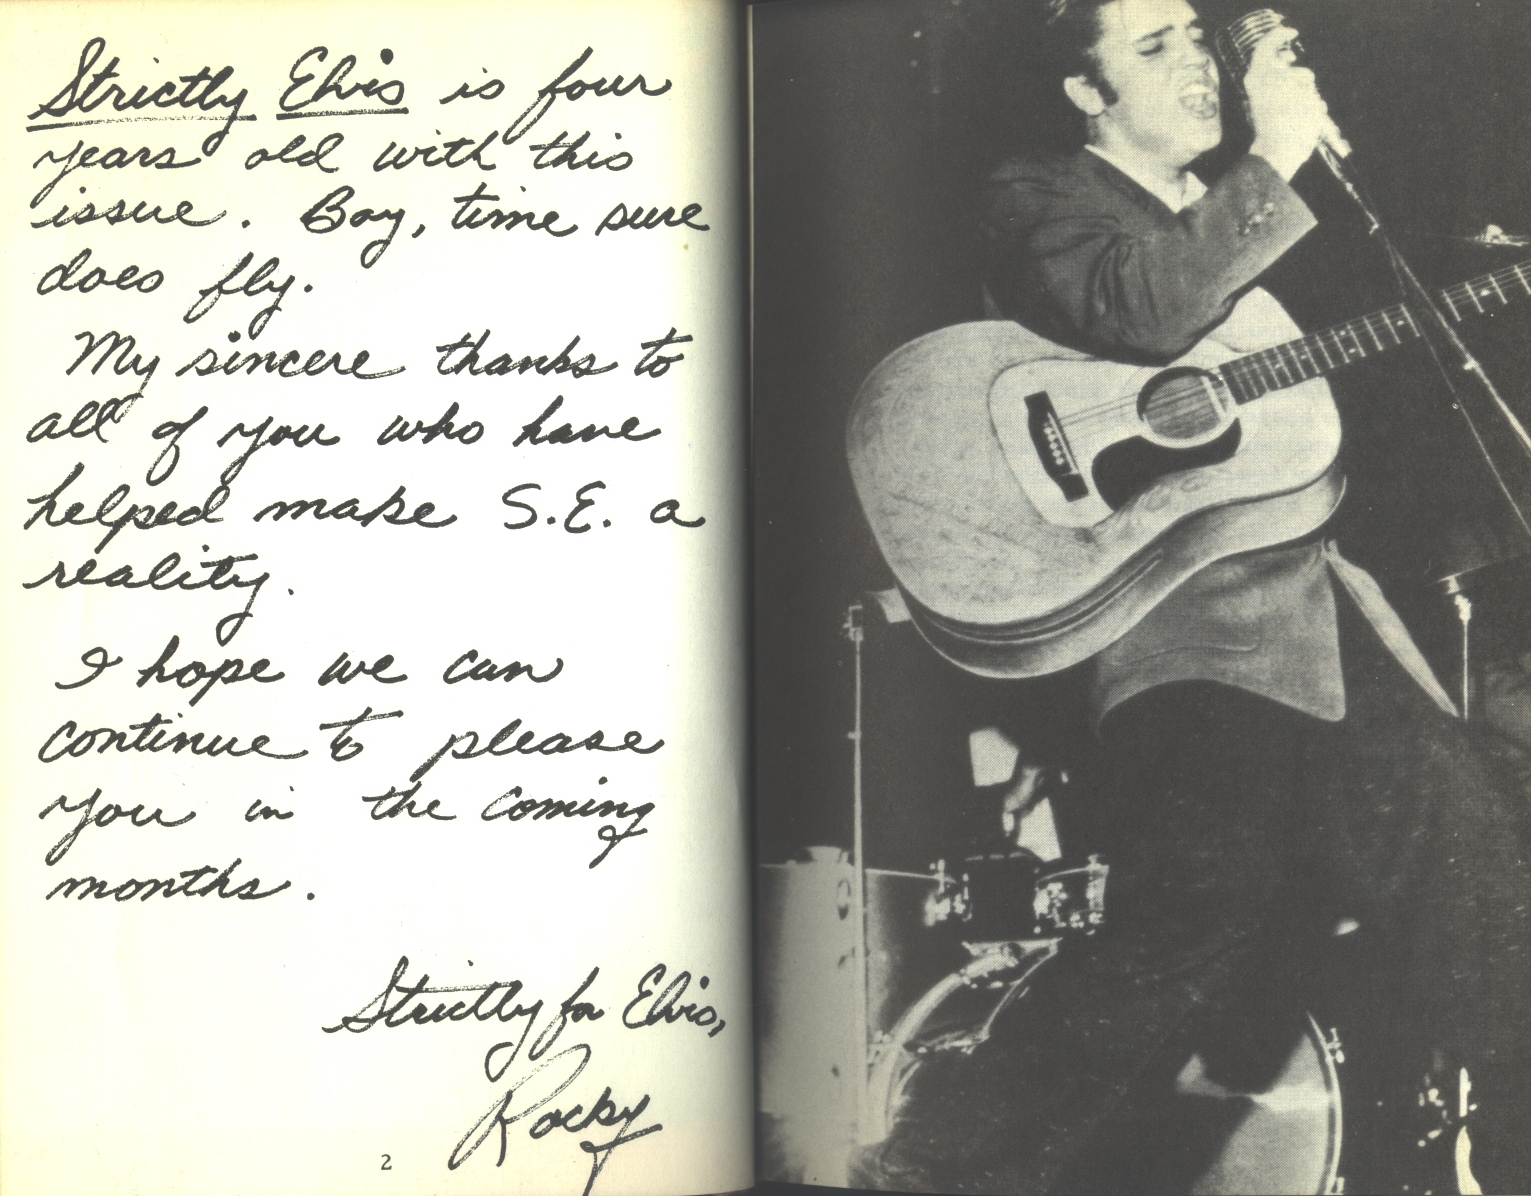 Strictly Elvis is four
years old with this
issue. Boy, time sure
does fly.
My sincere thanks to
all of you who have
helped make S.E. a
reality.
I hope we can
continue to please
you in the coming
months.
Strictly for Elvis,
Rocky
2